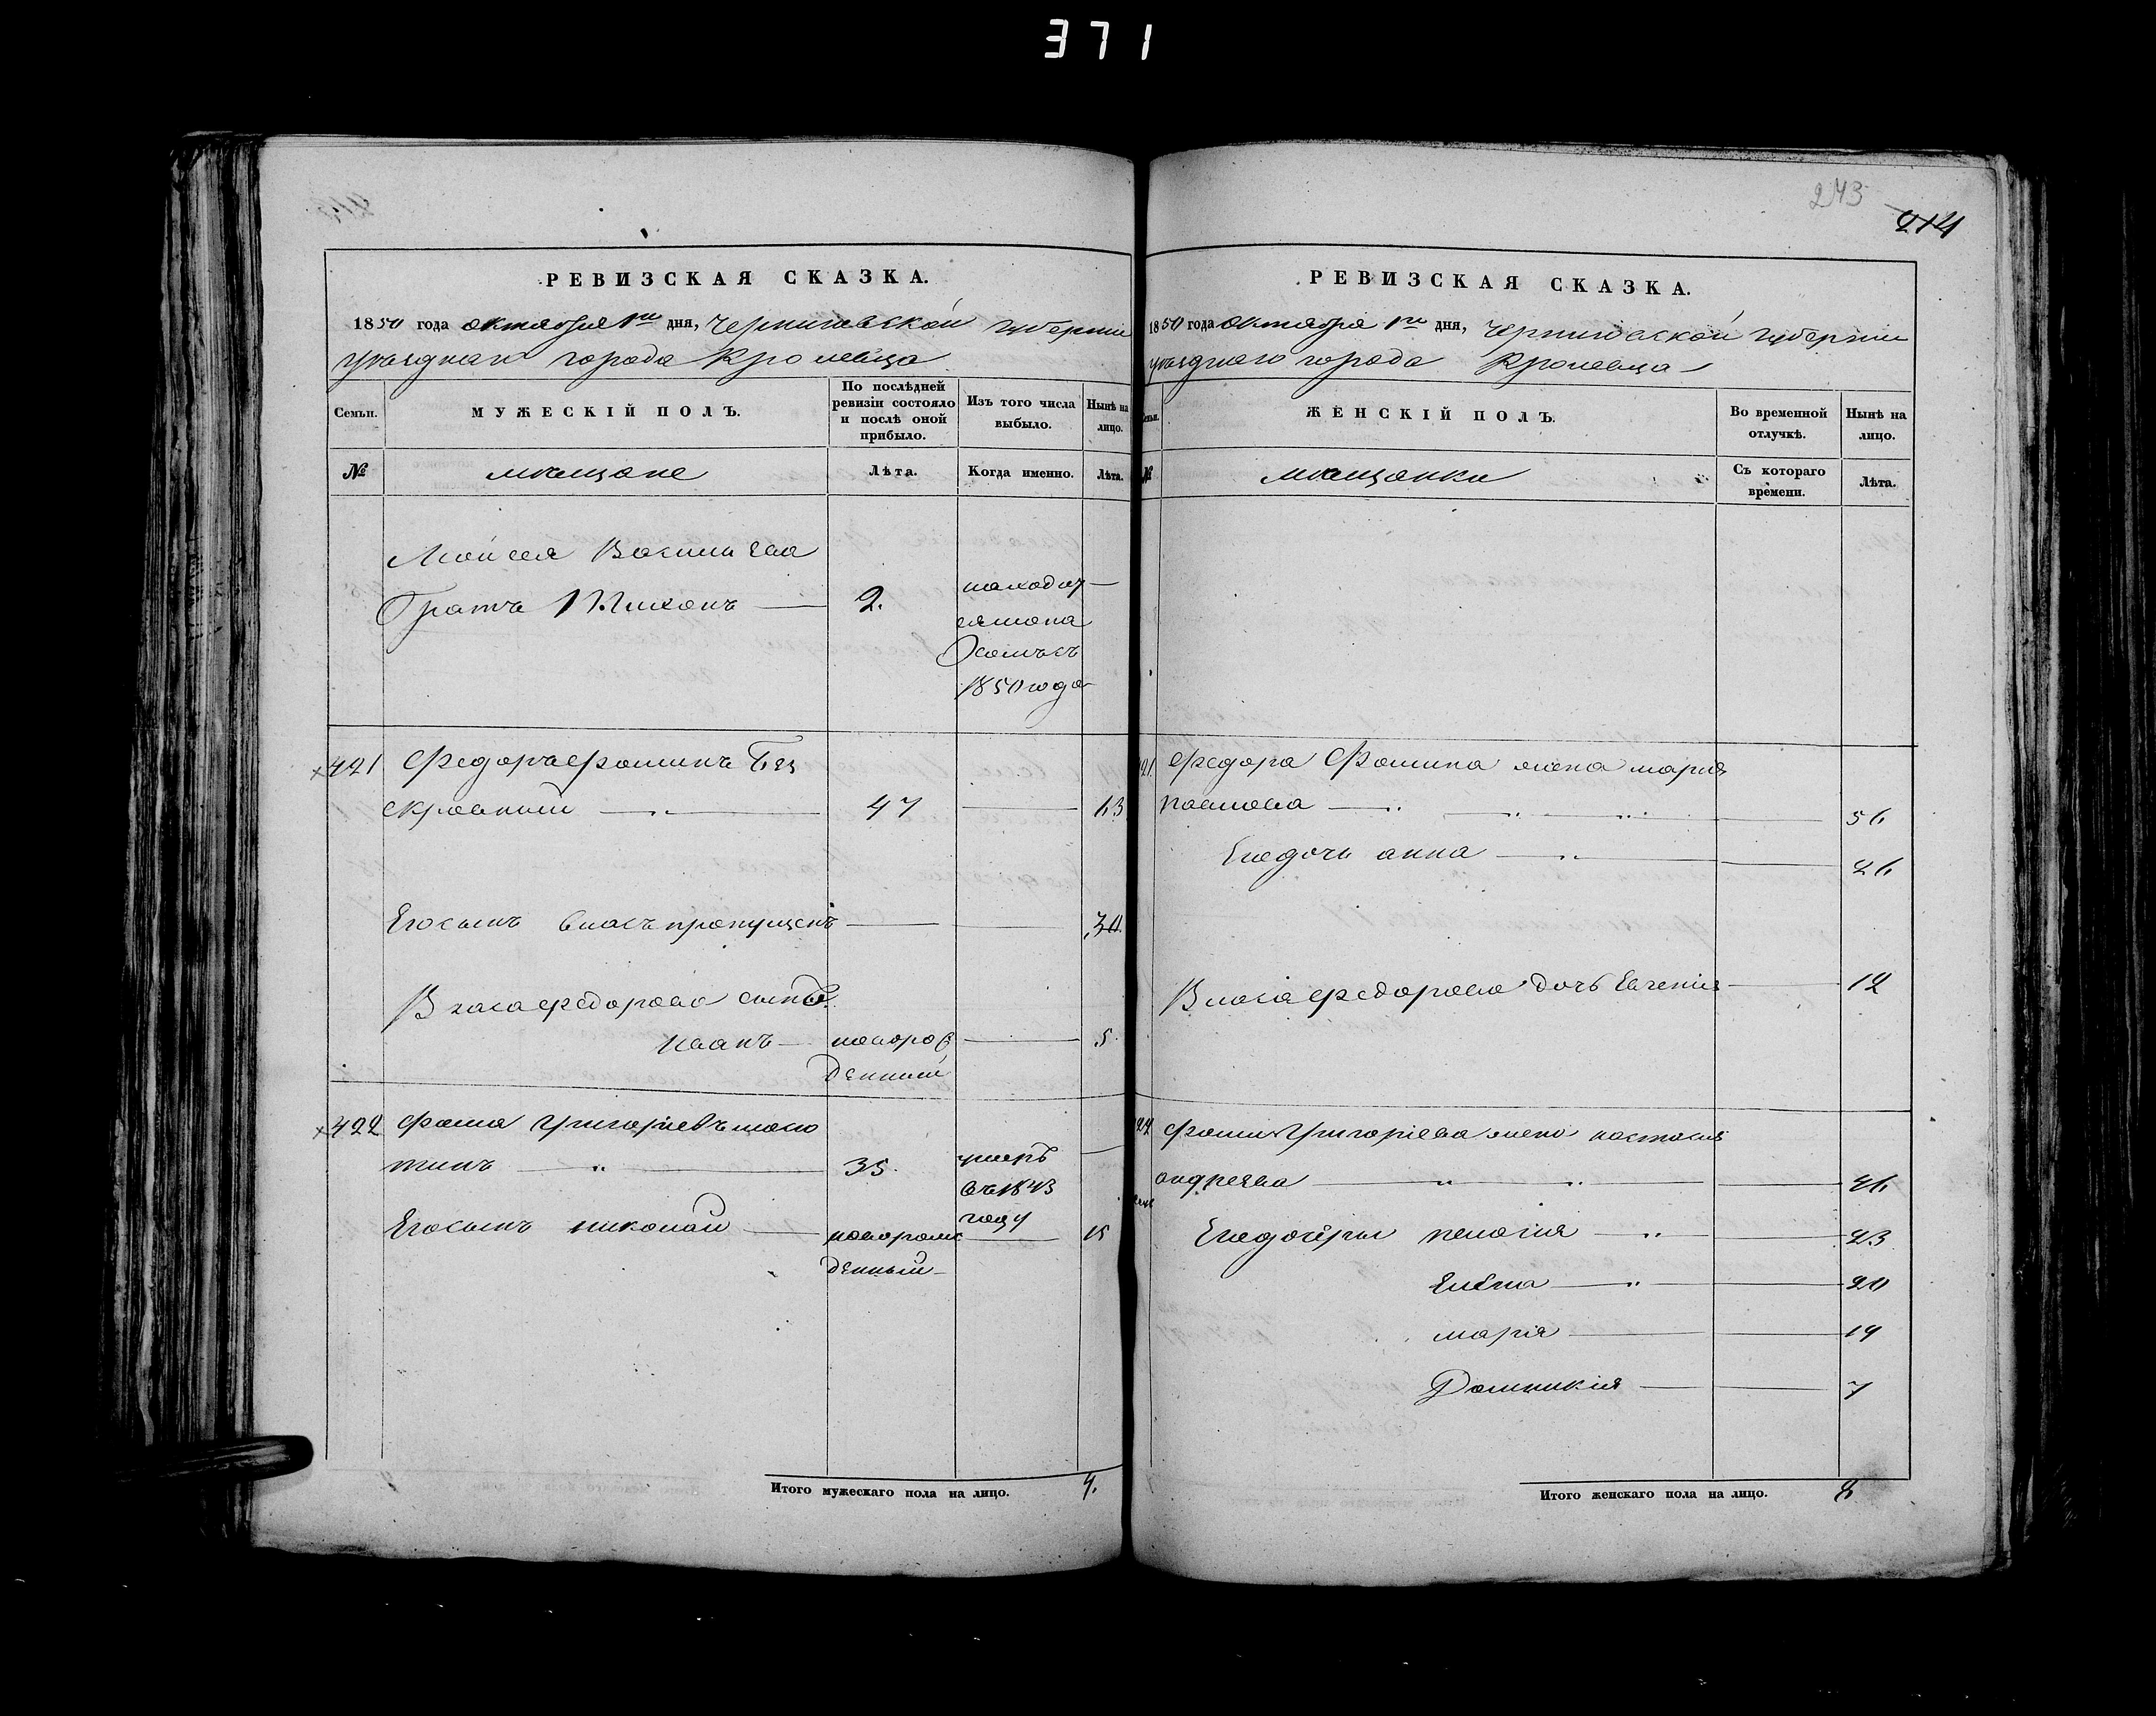 371
243
214
РЕВИЗСКАЯ СКАЗКА.
1850 года октября 1го дня, Черниговской губернии
уезднаго города Кролевца
Семьи. МУЖЕСКІЙ ПОЛЪ. По послѣдней ревизіи состояло и послѣ оной прибыло. Изъ того числа выбыло. Нынѣ на лицо.
№ мещане Лѣта. Когда именно. Лѣта.
Мойсея Васильева
братъ Тихонъ 2. находит
Охоть съ
1850 года
421 Федоръ Фоминъ Без
скровный 47 63
Его сынъ Власъ пропущенъ 30.
Власа Федорова сынъ
Иванъ новорож 5.
денный
422 Фома Григориевъ
тинъ 35. умеръ
въ 1843
году
Его сынъ Николай новорож 15
денный
Итого мужескаго пола на лицо. 4.
РЕВИЗСКАЯ СКАЗКА.
1850 года октября 1го дня, Черниговской губернии
уезднаго города Кролевца
Семьи. ЖЕНСКІЙ ПОЛЪ. Во временной отлучкѣ. Нынѣ на лицо.
№ мещанки Съ котораго времени. Лѣта.
21 Федора Фомина жена Мария
Павлова 56
Его дочь Анна 26
Власа Федорова дочь Евгения 12
22 Фомы Григоріева жена Настасия
Андреева 46
Его дочери Пелагия 23
Елена 20
Марія 19
Домникия 7
Итого женскаго пола на лицо. 8